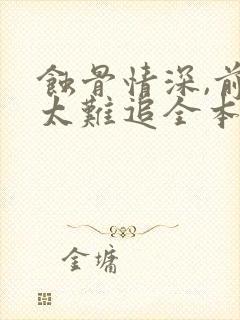 蝕骨情深,前
太難追全本
金墉